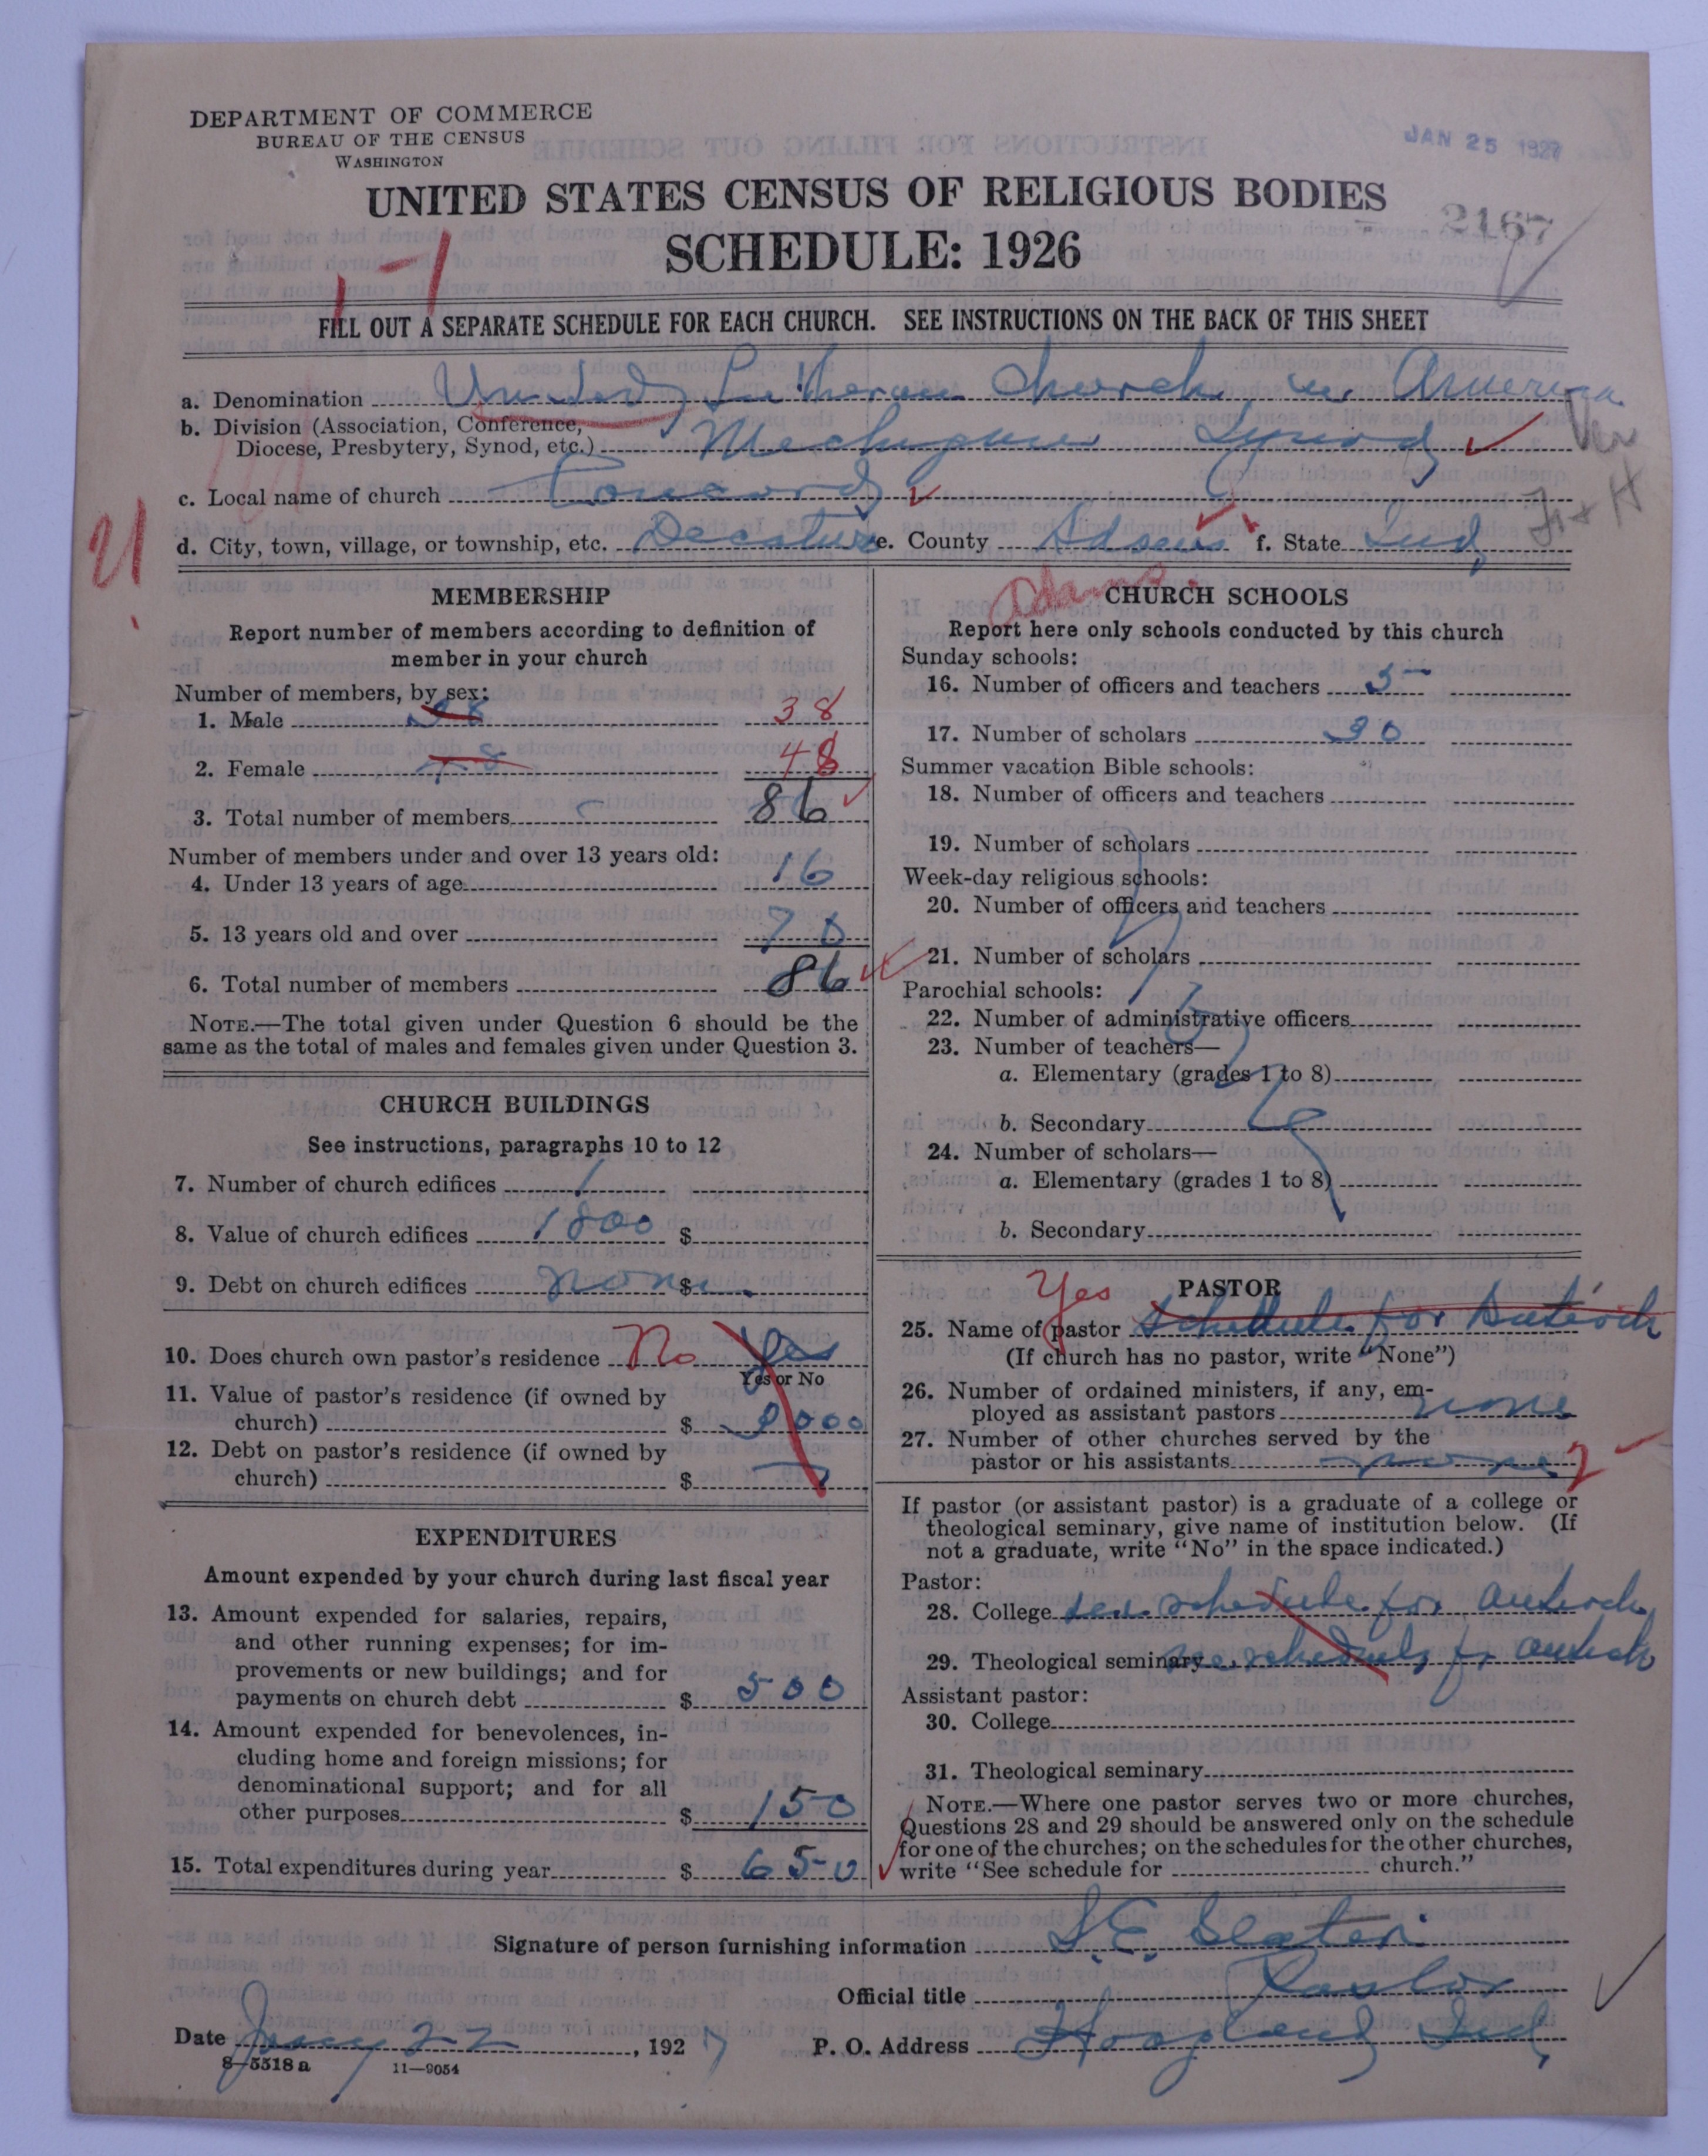 DEPARTMENT OF COMMERCE
BUREAU OF THE CENSUS
WASHINGTON
JAN 25 1927
UNITED STATES CENSUS OF RELIGIOUS BODIES
2167
SCHEDULE: 1926
1-1
FILL OUT A SEPARATE SCHEDULE FOR EACH CHURCH. SEE INSTRUCTIONS ON THE BACK OF THIS SHEET
a. Denomination United Lutheran Church in America
b. Division (Association, Conference,
Diocese, Presbytery, Synod, etc.) Michigan Synod
c. Local name of church Concord
d. City, town, village, or township, etc. Decatur e. County Adams f. State Ind,
Adams
MEMBERSHIP
Report number of members according to definition of
member in your church
Number of members, by sex:
1. Male 38 38
2. Female 48 48
3. Total number of members 86
Number of members under and over 13 years old:
4. Under 13 years of age 16
5. 13 years old and over 70
6. Total number of members 86
NOTE.—The total given under Question 6 should be the
same as the total of males and females given under Question 3.
CHURCH BUILDINGS
See instructions, paragraphs 10 to 12
7. Number of church edifices 1
8. Value of church edifices 1800 $
9. Debt on church edifices none $
10. Does church own pastor's residence No Yes
Yes or No
11. Value of pastor's residence (if owned by
church) $
12. Debt on pastor's residence (if owned by
church) $
EXPENDITURES
Amount expended by your church during last fiscal year
13. Amount expended for salaries, repairs,
and other running expenses; for im-
provements or new buildings; and for
payments on church debt $ 500
14. Amount expended for benevolences, in-
cluding home and foreign missions; for
denominational support; and for all
other purposes $ 150
15. Total expenditures during year $ 650
CHURCH SCHOOLS
Report here only schools conducted by this church
Sunday schools:
16. Number of officers and teachers 5
17. Number of scholars 30
Summer vacation Bible schools:
18. Number of officers and teachers
19. Number of scholars
Week-day religious schools:
20. Number of officers and teachers
21. Number of scholars
Parochial schools:
22. Number of administrative officers
23. Number of teachers—
a. Elementary (grades 1 to 8)
b. Secondary
24. Number of scholars—
a. Elementary (grades 1 to 8)
b. Secondary
Yes PASTOR
25. Name of pastor Schedule for Antioch
(If church has no pastor, write "None")
26. Number of ordained ministers, if any, em-
ployed as assistant pastors none
27. Number of other churches served by the
pastor or his assistants none 2
If pastor (or assistant pastor) is a graduate of a college or
theological seminary, give name of institution below. (If
not a graduate, write "No" in the space indicated.)
Pastor:
28. College see schedule for Antioch
29. Theological seminary see schedule for Antioch
Assistant pastor:
30. College
31. Theological seminary
NOTE.—Where one pastor serves two or more churches,
Questions 28 and 29 should be answered only on the schedule
for one of the churches; on the schedules for the other churches,
write "See schedule for church."
Signature of person furnishing information S. E. Slater
Official title Pastor
Date Jany 22, 1927 P. O. Address Hoagland Ind,
8-5518 a 11—9054